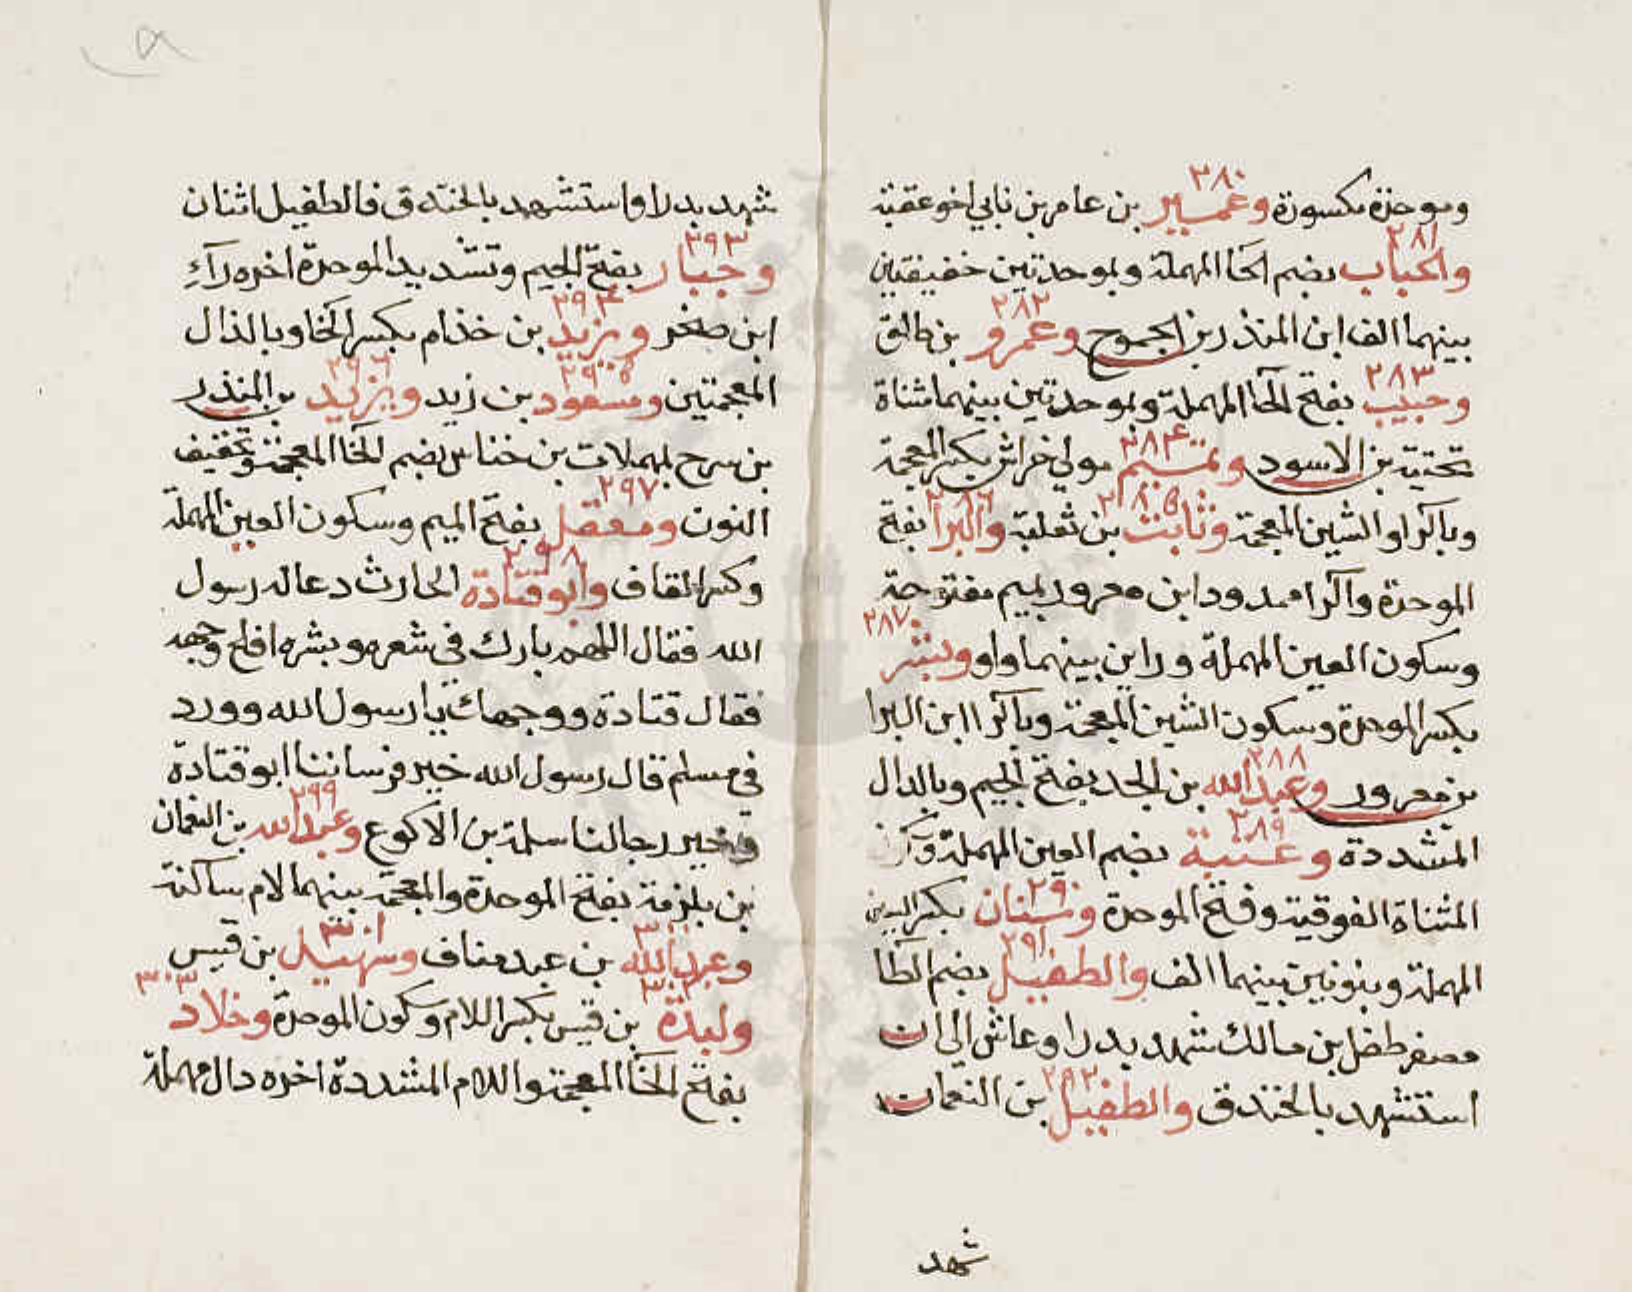 وموحدة مكسورة وعمير بن عامر بن نابي اخو عقبة
٢٨٠
والحباب بضم الحا المهملة وبموحدتين خفيفتين
٢٨١
بينهما الف ابن المنذر بن الجموح وعمرو بن طالق
٢٨٢
وحبيب بفتح الحا المهملة وبموحدتين بينهما مثناة
٢٨٣
تحتية بن الاسود وتميم مولى خراش بكسر المعجمة
٢٨٤
وبالراو الشين المعجمة وثابت بن ثعلبة والبرا بفتح
٢٨٥ ٢٨٦
الموحدة والرا ممدود ابن معرور بميم مفتوحة
وسكون العين المهملة وراين بينهما واو وبشر
٢٨٧
بكسر الموحدة وسكون الشين المعجمة وبالرا ابن البرا
بن معرور وعبد الله بن الجد بفتح الجيم وبالدال
٢٨٨
المشددة وعتبة بضم العين المهملة
٢٨٩
المثناة الفوقية وفتح الموحدة وسنان بكسر السين
٢٩٠
المهملة وبنونين بينهما الف والطفيل بضم الطا
٢٩١
مصغر طفل بن مالك شهد بدرا وعاش الى ان
استشهد بالخندق والطفيل بن النعمان
٢٩٢
شهد
شهد بدرا واستشهد بالخندق فالطفيل اثنان
وجبار بفتح الجيم وتشديد الموحدة اخره راء
٢٩٣
ابن صخر ويزيد بن خذام بكسر الخا وبالذال
٢٩٤
المعجمتين ومسعود بن زيد ويزيد بن المنذر
٢٩٥ ٢٩٦
بن سرح بمهملات بن خناس بضم الخا المعجمة وتخفيف
النون ومعقل بفتح الميم وسكون العين المهملة
٢٩٧
وكسر القاف وابو قتادة الحارث دعا له رسول
٢٩٨
الله فقال اللهم بارك في شعره وبشره افلح وجهه
فقال قتادة ووجهك يا رسول الله وورد
في مسلم قال رسول الله خير فرساننا ابو قتادة
وخير رجالنا سلمة بن الاكوع وعبد الله بن النعمان
٢٩٩
بن بلزمة بفتح الموحدة والمعجمة بينهما لام ساكنة
وعبد الله بن عبد مناف وسهيل بن قيس
٣٠٠ ٣٠١
ولبدة بن قيس بكسر اللام وسكون الموحدة وخلاد
٣٠٢ ٣٠٣
بفتح الخا المعجمة واللام المشددة اخره دال مهملة